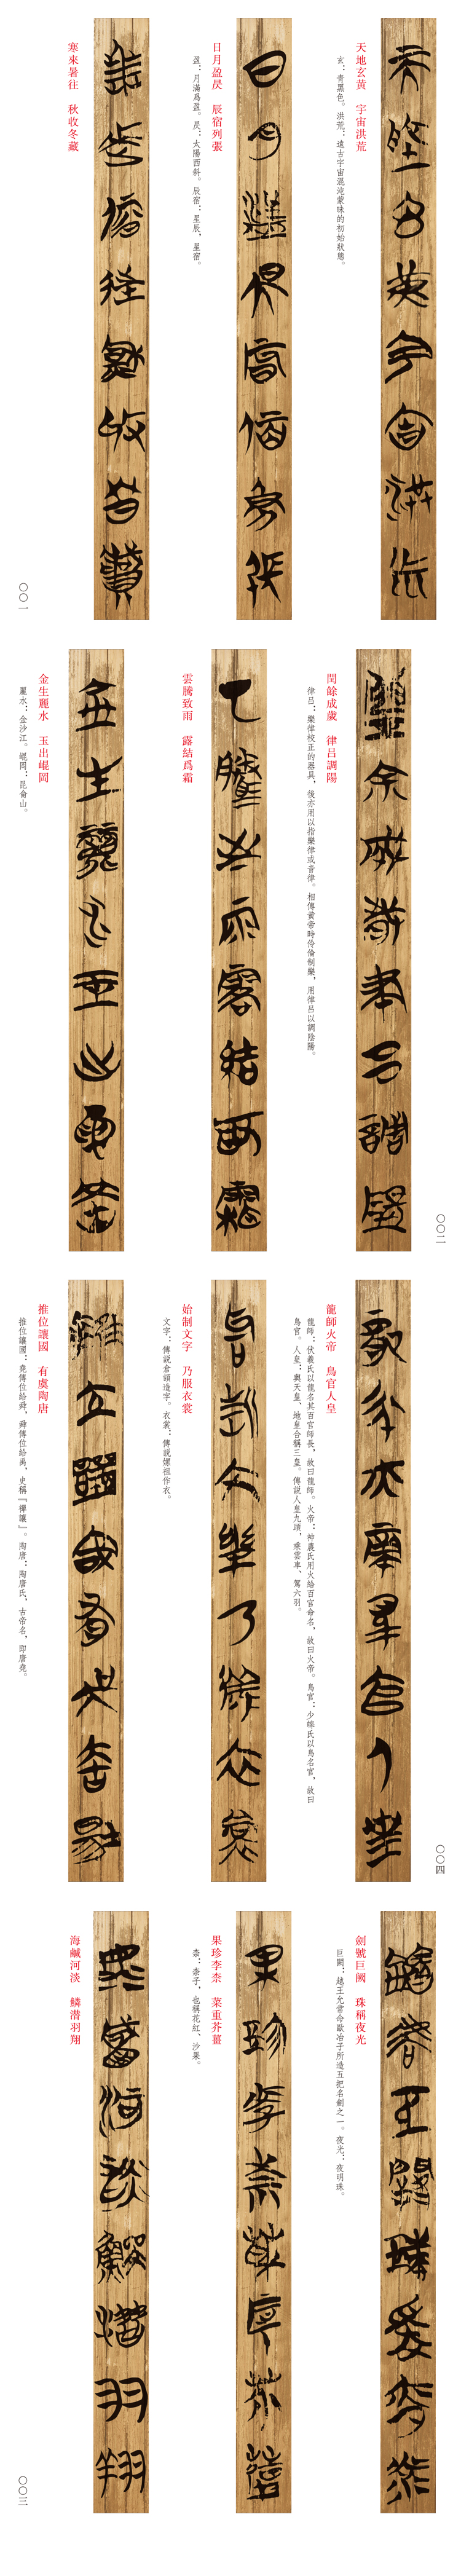 天地玄黄　宇宙洪荒
玄：青黑色。洪荒：遠古宇宙混沌蒙昧的初始狀態。
日月盈昃　辰宿列張
盈：月滿爲盈。昃：太陽西斜。辰宿：星辰，星宿。
寒來暑往　秋收冬藏
〇〇一
閏餘成歲　律吕調陽
律吕：樂律校正的器具，後亦用以指樂律或音律。相傳黄帝時伶倫制樂，用律吕以調陰陽。
雲騰致雨　露結爲霜
金生麗水　玉出崐岡
麗水：金沙江。崐岡：昆侖山。
〇〇二
龍師火帝　鳥官人皇
龍師：伏羲氏以龍名其百官師長，故曰龍師。火帝：神農氏用火給百官命名，故曰火帝。鳥官：少皞氏以鳥名官，故曰
鳥官。人皇：與天皇、地皇合稱三皇。傳説人皇九頭，乘雲車、駕六羽。
始制文字　乃服衣裳
文字：傳説倉頡造字。衣裳：傳説嫘祖作衣。
推位讓國　有虞陶唐
推位讓國：堯傳位給舜，舜傳位給禹，史稱『禪讓』。陶唐：陶唐氏，古帝名，即唐堯。
〇〇四
劍號巨闕　珠稱夜光
巨闕：越王允常命歐冶子所造五把名劍之一。夜光：夜明珠。
果珍李柰　菜重芥薑
柰：柰子，也稱花紅、沙果。
海鹹河淡　鱗潜羽翔
〇〇三